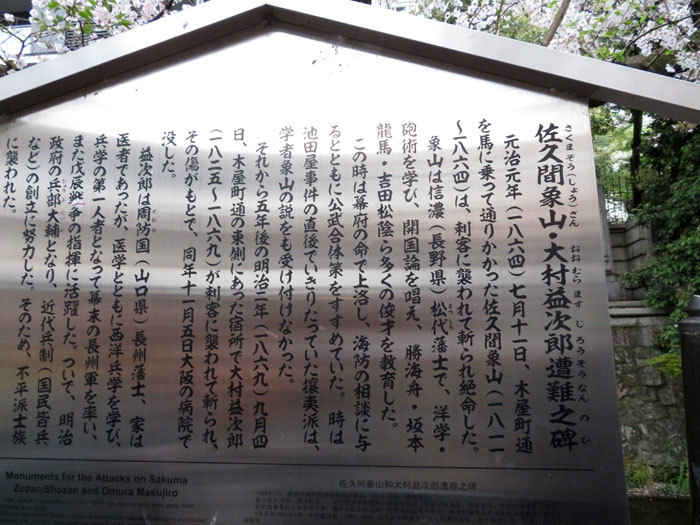 さくまぞう(しょう)ざん おおむらますじろうそうなんのひ
佐久間象山・大村益次郎遭難之碑
元治元年(一八六四)七月十一日、木屋町通
を馬に乗って通りかかった佐久間象山(一八一一
〜一八六四)は、刺客に襲われて斬られ絶命した。
象山は信濃(長野県)松代藩士で、洋学・
まつしろ
砲術を学び、開国論を唱え、勝海舟・坂本
龍馬・吉田松陰ら多くの俊才を教育した。
この時は幕府の命で上洛し、海防の相談に与
るとともに公武合体策をすすめていた。時は
池田屋事件の直後でいきりたっていた攘夷派は、
学者象山の説をも受け付けなかった。
それから五年後の明治二年(一八六九)九月四
日、木屋町通の東側にあった宿所で大村益次郎
(一八二五〜一八六九)が刺客に襲われて斬られ、
その傷がもとで、同年十一月五日大阪の病院で
没した。
益次郎は周防国(山口県)長州藩士、家は
すおう
医者であったが、医学とともに西洋兵学を学び、
兵学の第一人者となって幕末の長州軍を率い、
また戊辰戦争の指揮に活躍した。ついで、明治
政府の兵部大輔となり、近代兵制(国民皆兵
など)の創立に努力した。そのため、不平派士族
に襲われた。
Monuments for the Attacks on Sakuma
Zozan/Shozan and Omura Masujiro
佐久间象山和大村益次郎遭难之碑